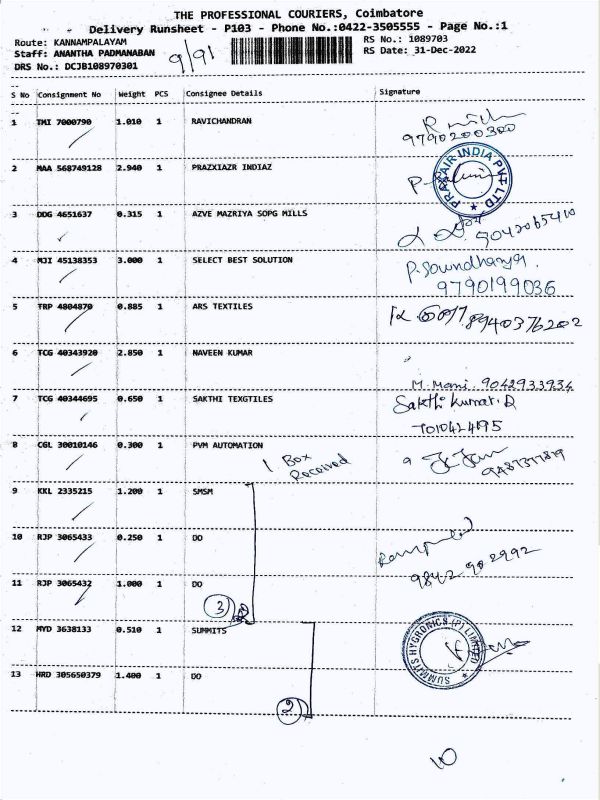 THE PROFESSIONAL COURIERS, Coimbatore
Delivery Runsheet - P103 - Phone No.:0422-3505555 - Page No.:1
Route: KANNAMPALAYAM
Staff: ANANTHA PADMANABAN
DRS No.: DCJB108970301
9/91
RS No.: 1089703
RS Date: 31-Dec-2022
S No Consignment No Weight PCS Consignee Details Signature
1 TMI 7000790 1.010 1 RAVICHANDRAN
9790200300
2 MAA 568749128 2.940 1 PRAZXIAZR INDIAZ
PRAXAIR INDIA PVT LTD
3 DDG 4651637 0.315 1 AZVE MAZRIYA SOPG MILLS
9042065410
4 MJI 45138353 3.000 1 SELECT BEST SOLUTION
P. Soundharya.
9790199036
5 TRP 4804870 0.885 1 ARS TEXTILES
8940376202
6 TCG 40343920 2.850 1 NAVEEN KUMAR
M. Mani. 9042933934
7 TCG 40344695 0.650 1 SAKTHI TEXGTILES
Sakthi Kumar. R
8 CGL 30010146 0.300 1 PVM AUTOMATION
1 Box
Received
9 KKL 2335215 1.200 1 SMSM
10 RJP 3065433 0.250 1 DO
9842 90 2992
11 RJP 3065432 1.000 1 DO
3
12 MYD 3638133 0.510 1 SUMMITS
SUMMITS HYGRONICS (P) LIMITED
13 HRD 305650379 1.400 1 DO
2
10